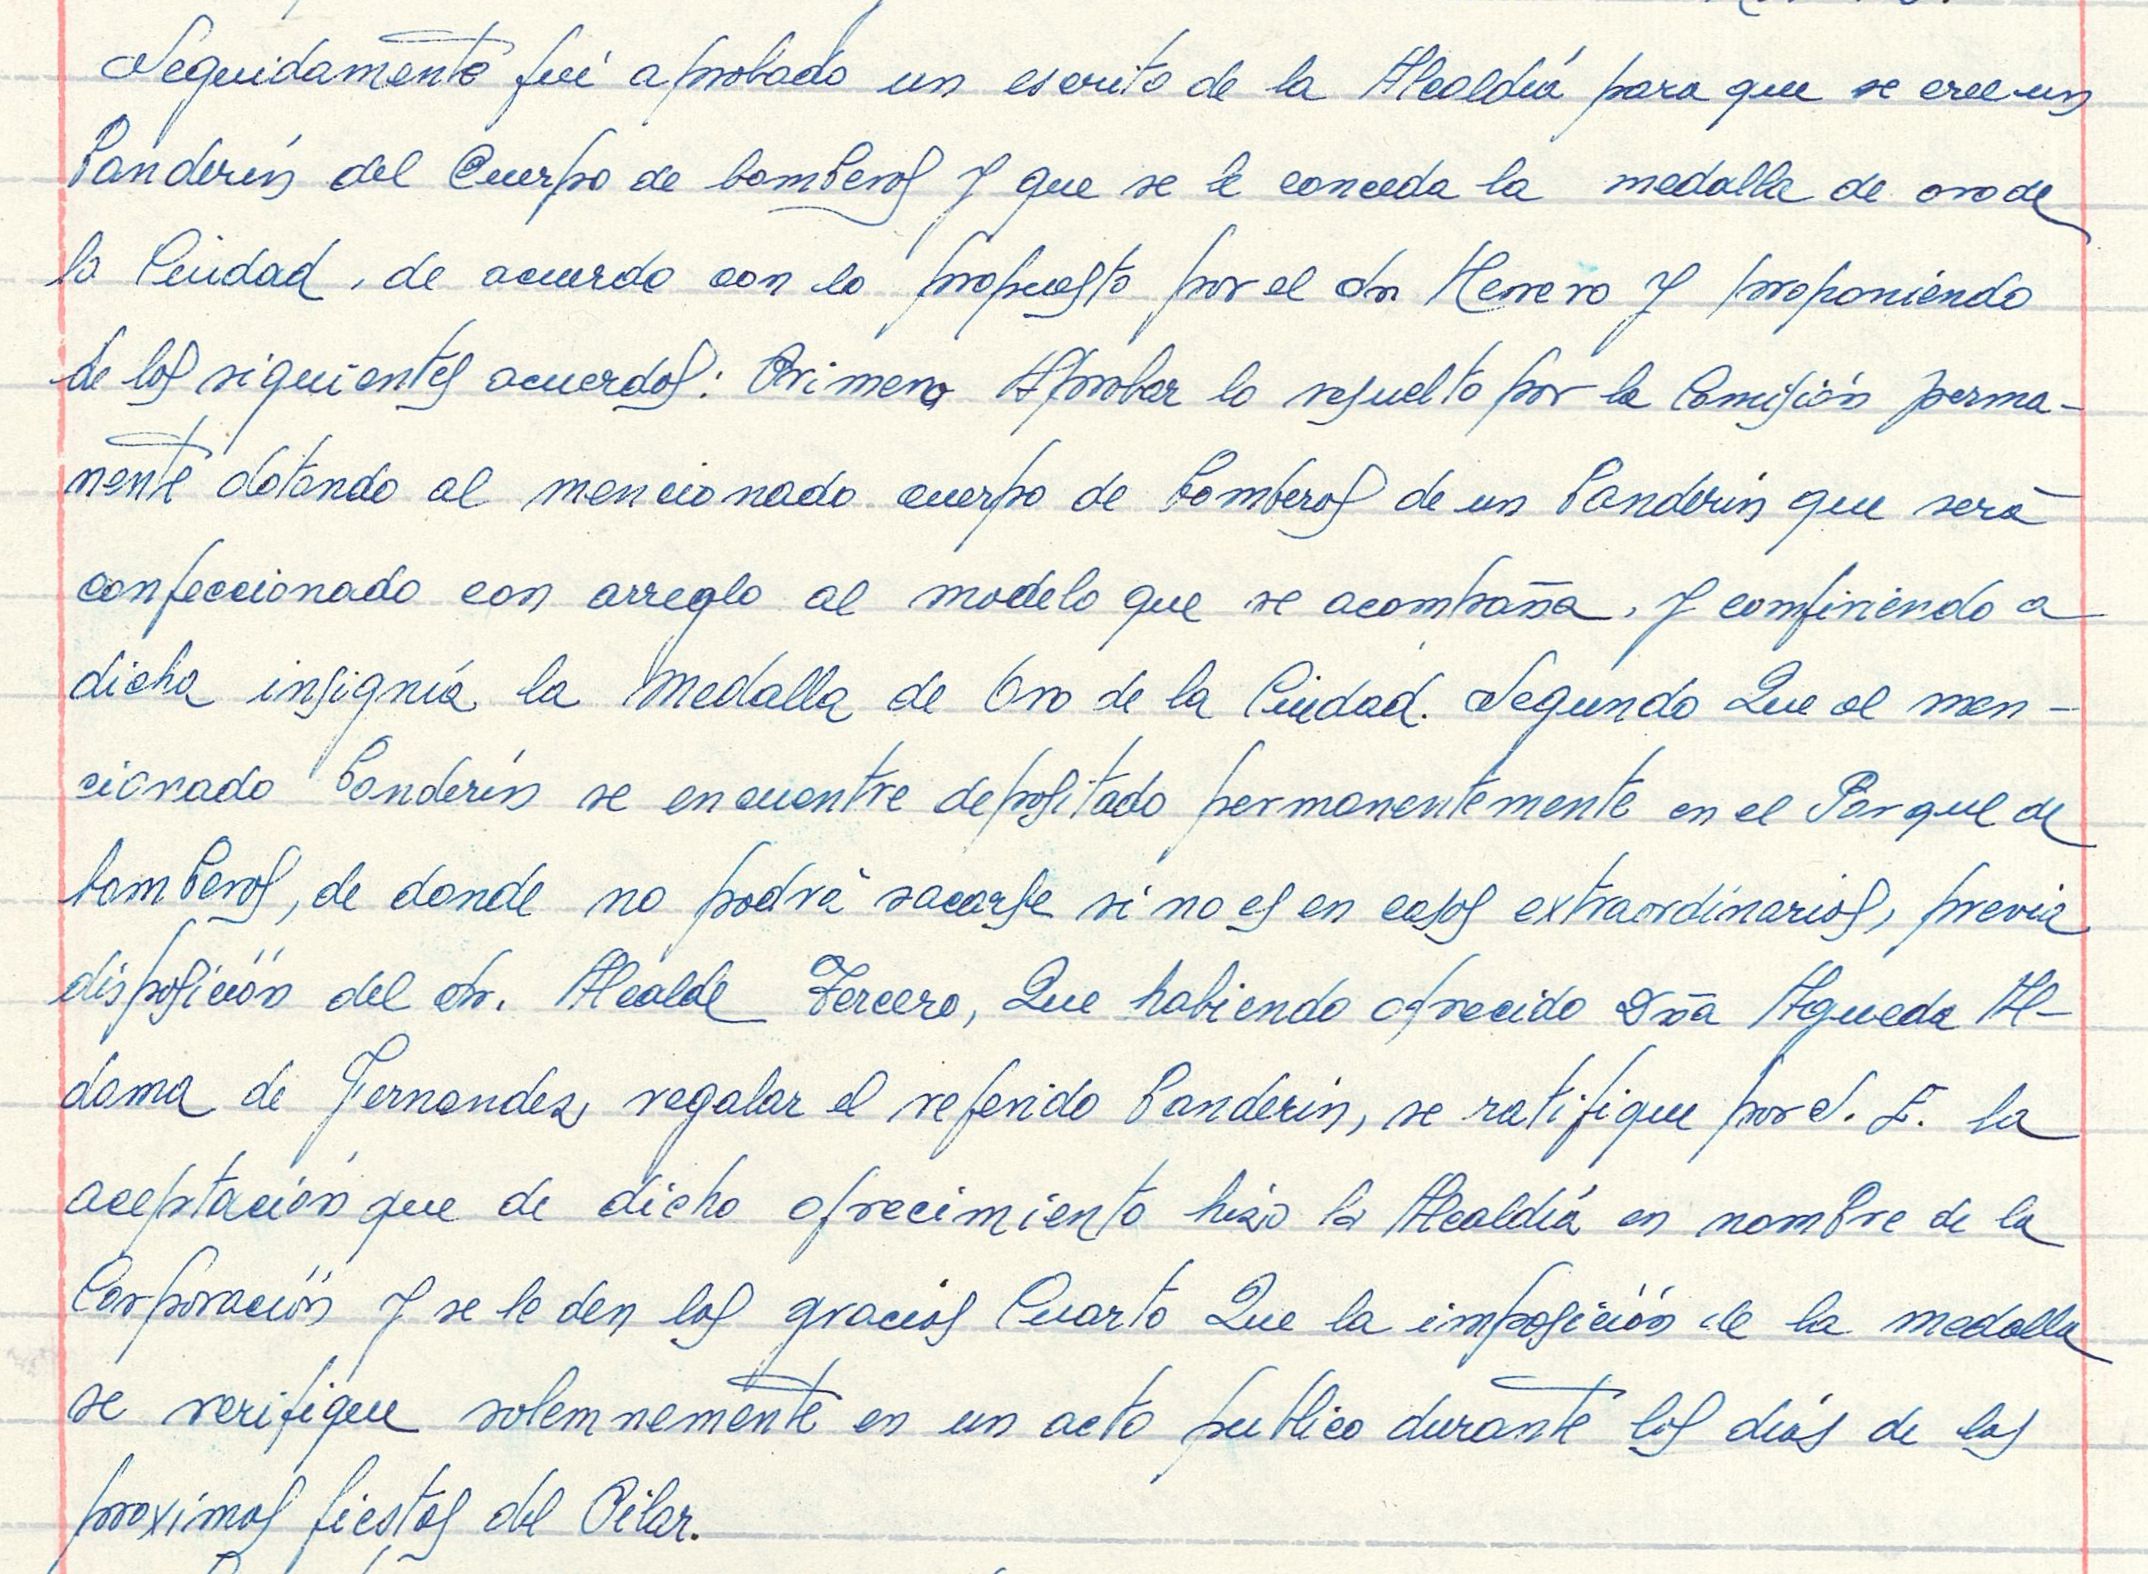 Seguidamente fué aprobado un escrito de la Alcaldía para que se cree un
banderín del Cuerpo de bomberos y que se le conceda la medalla de oro de
la Ciudad, de acuerdo con lo propuesto por el Sr Herrero y proponiendo
de los siguientes acuerdos: Primero Aprobar lo resuelto por la Comisión perma-
nente dotando al mencionado cuerpo de bomberos de un banderín que será
confeccionado con arreglo al modelo que se acompaña, y confiriendo a
dicha insignia la Medalla de Oro de la Ciudad. Segundo Que el men-
cionado banderín se encuentre depositado permanentemente en el Parque de
bomberos, de donde no podrá sacarse si no es en casos extraordinarios, previa
disposición del Sr. Alcalde Tercero, Que habiendo ofrecido Dña Agueda Al-
dama de Fernandez, regalar el referido banderín, se ratifique por S. E. la
aceptación que de dicho ofrecimiento hizo la Alcaldía en nombre de la
Corporación y se le den las gracias Cuarto Que la imposición de la medalla
se verifique solemnemente en un acto publico durante los días de las
proximas fiestas del Pilar.